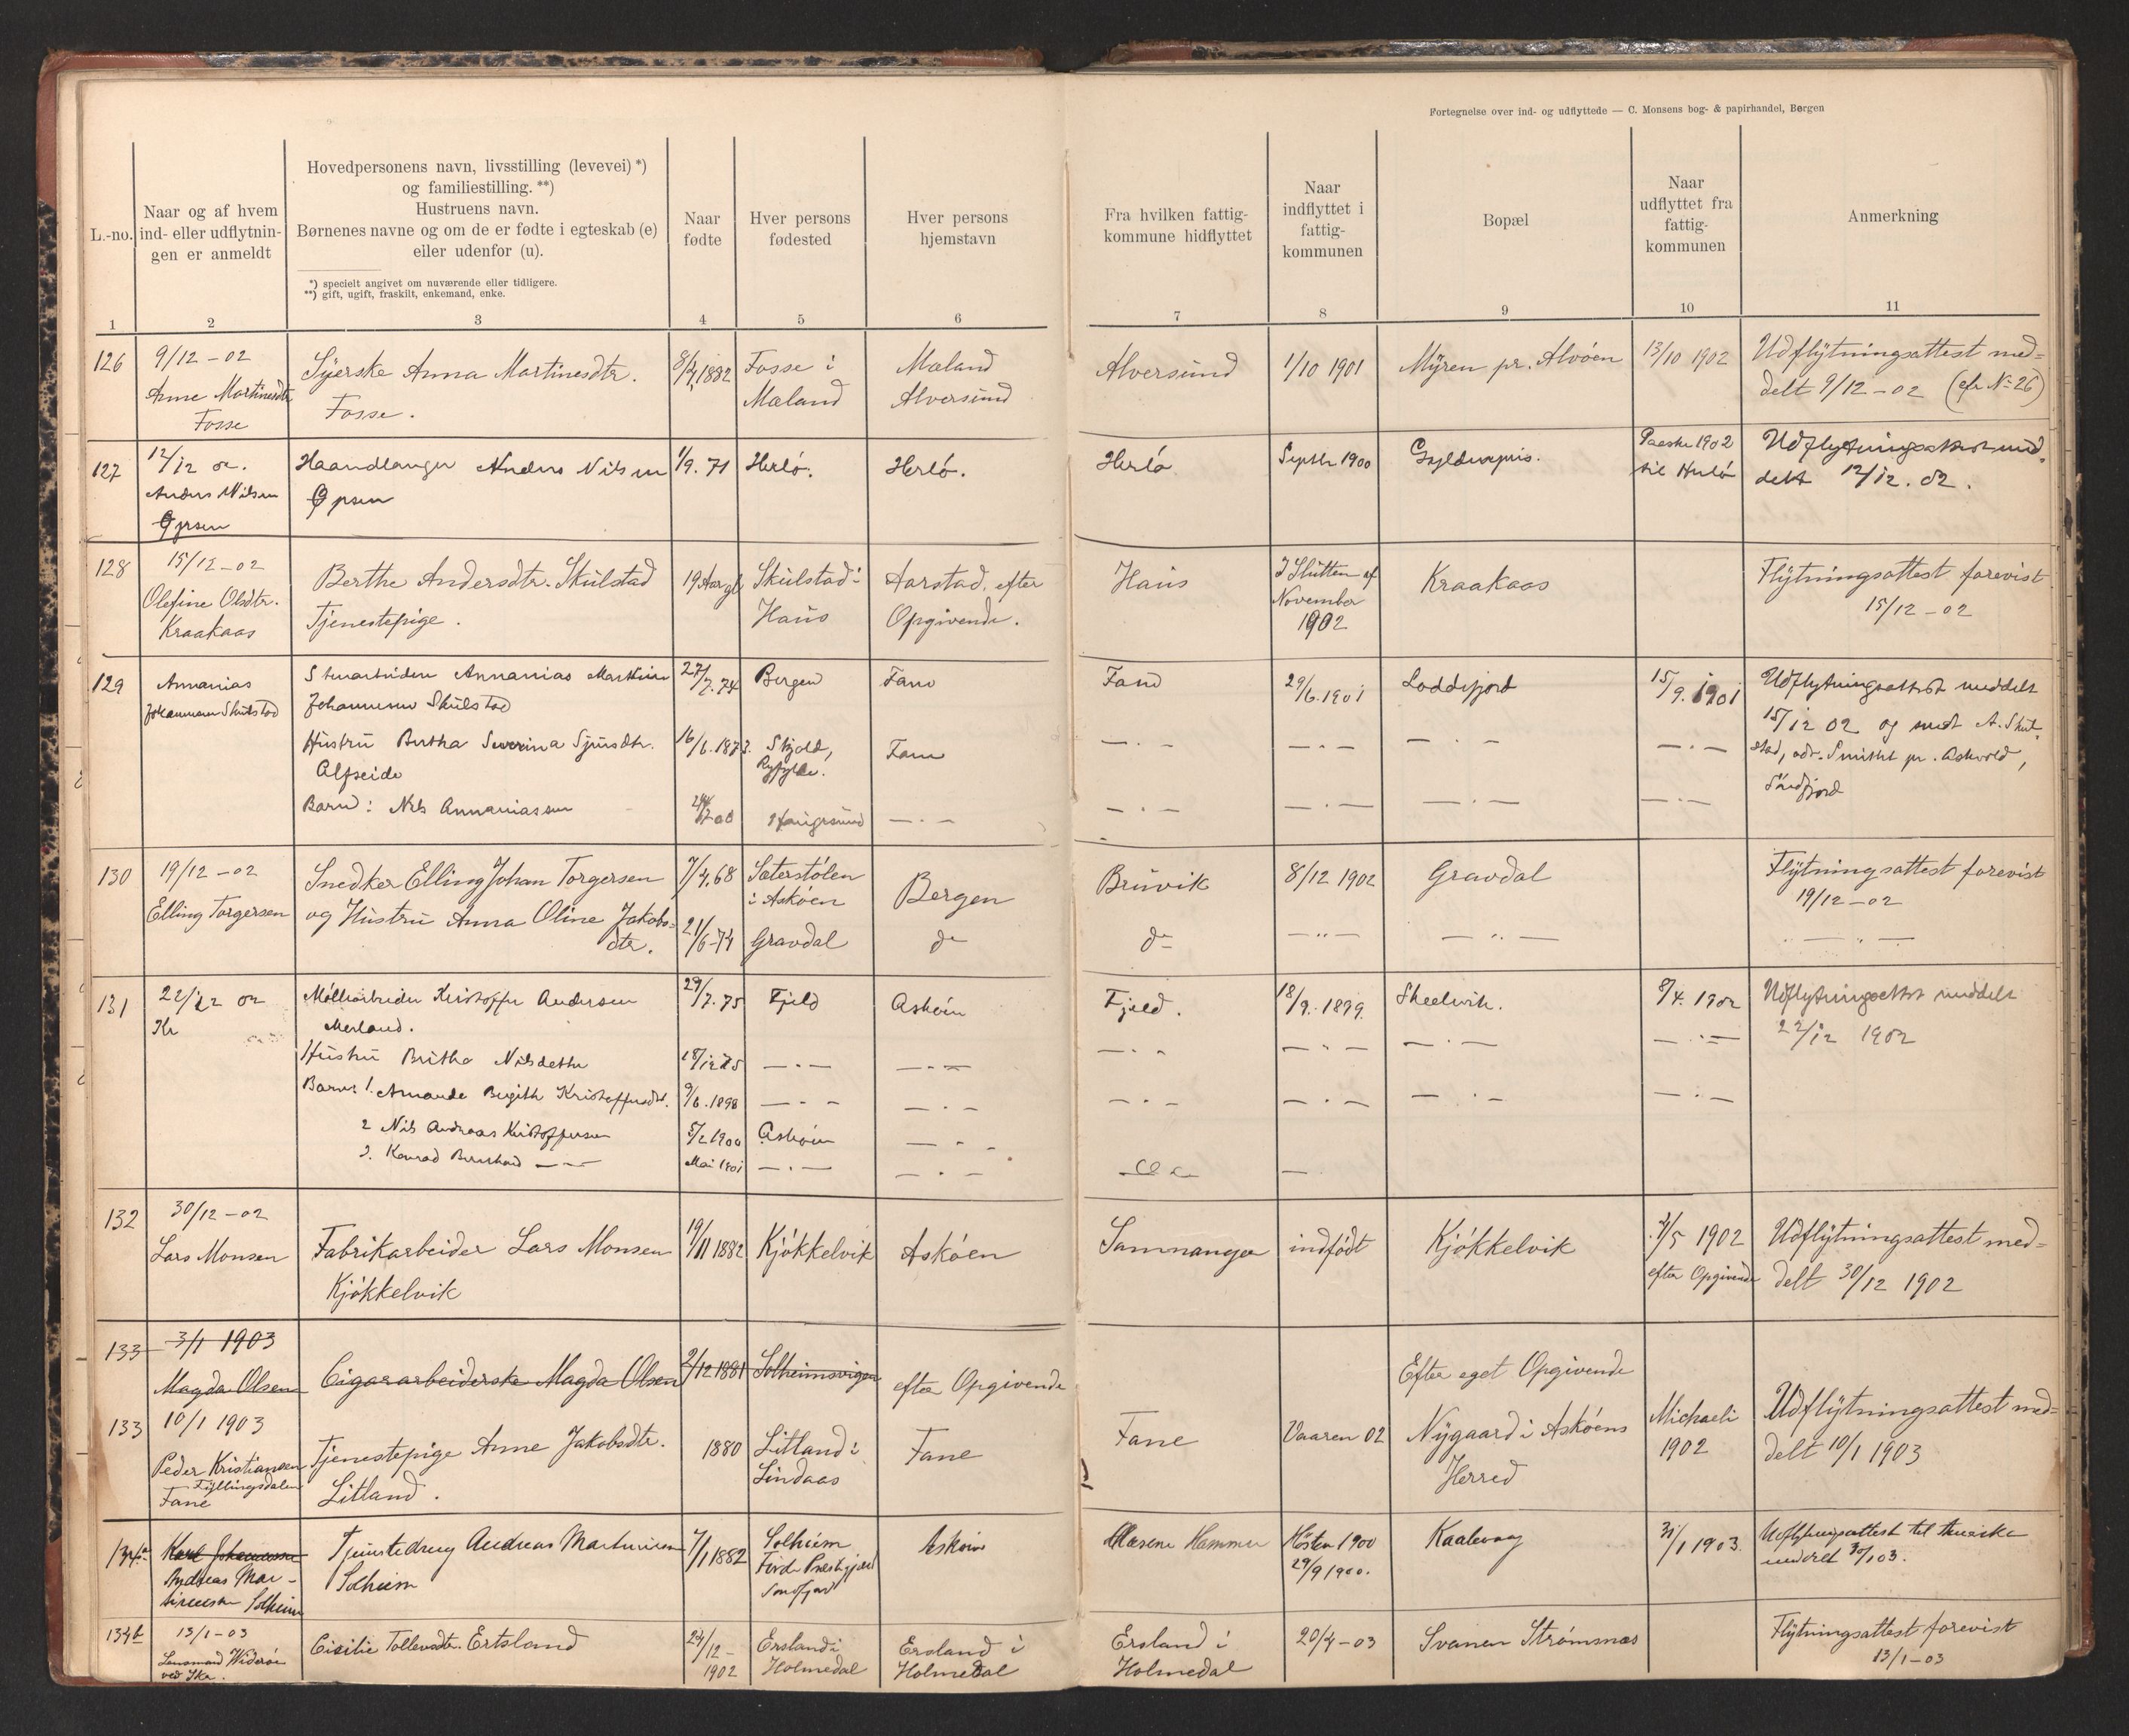 Fortegnelse over ind- og udflyttede — C. Monsens bog- & papirhandel, Bergen
L.-no.
Naar og af hvem
ind- eller udflytnin-
gen er anmeldt
Hovedpersonens navn, livsstilling (levevei) *)
og familiestilling. **)
Hustruens navn.
Børnenes navne og om de er fødte i egteskab (e)
eller udenfor (u).
*) specielt angivet om nuværende eller tidligere.
**) gift, ugift, fraskilt, enkemand, enke.
Naar
fødte
Hver persons
fødested
Hver persons
hjemstavn
Fra hvilken fattig-
kommune hidflyttet
Naar
indflyttet i
fattig-
kommunen
Bopæl
Naar
udflyttet fra
fattig-
kommunen
Anmerkning
1 2 3 4 5 6 7 8 9 10 11
126
9/12 - 02
Anne Martinesdtr
Fosse
Syerske Anna Martinesdtr.
Fosse.
8/4 1882
Fosse i
Mæland
Mæland
Alversund
Alversund
1/10 1901
Myren pr. Alvøen
13/10 1902
Udflytningsattest med=
delt 9/12 - 02 (cfr No 26)
127
12/12 02.
Anders Nilsen
Haandlanger Anders Nilsen
1/9. 71
Herlø.
Herlø.
Herlø
Septbr 1900
Gyldenpris.
Paaske 1902
til Herlø
Udflytningsattest med-
delt 12/12. 02.
128
15/12 - 02
Olefine Olsdtr.
Kraakaas
Berthe Andersdtr. Skulstad
Tjenestepige.
19 Aar gl
Skulstad i
Haus
Aarstad, efter
Opgivende.
Haus
I Slutten af
November
1902
Kraakaas
Flytningsattest forevist
15/12 - 02
129
Annanias
Johannesen Skulstad
Stenarbeider Annanias Martinus
Johannesen Skulstad
27/7. 74
Bergen
Fane
Fane
29/6. 1901
Loddefjord
15/9. 1901
Udflytningsattest meddelt
15/12 02 og sendt A. Skul-
stad, adr. Smittet pr. Askvold,
Søndfjord
Hustru Bertha Severina Sjursdtr.
Alfseide
16/6. 1873.
Skjold,
Ryfylke.
Fane
— . —
— . —
— . —
— . —
Barn: Nils Annaniassen
Haugesund
— . —
— . —
— . —
— . —
— . —
130
19/12 - 02
Elling Torgersen
Snedker Elling Johan Torgersen
og Hustru Anna Oline Jakobs=
dtr.
7/4. 68
21/6 - 74
Sæterstølen
i Askøen
Gravdal
Bergen
do
Bruvik
do
8/12 1902
— " —
Gravdal
— " —
Flytningsattest forevist
19/12 - 02
— " —
131
22/12 02
Kr
Møllearbeider Kristoffer Andersen
Morland.
29/7. 75
Fjeld
Askøen
Fjeld.
18/9. 1899.
Skeelvik.
8/4. 1902
Udflytningsattest meddelt
22/12 1902
Hustru Britha Nilsdotter
18/12 75
— . —
— . —
— . —
— . —
— . —
— . —
Barn: 1. Amanda Birgith Kristoffersdt.
9/6. 1898
— . —
— . —
— . —
— . —
— . —
— . —
2 Nils Andreas Kristoffersen
5/2 1900
Askøen
— . —
3. Konrad Bernhard — . —
Mai 1901
— . —
— . —
132
30/12 - 02
Lars Monsen
Fabrikarbeider Lars Monsen
Kjøkkelvik
19/11 1882
Kjøkkelvik
Askøen
Samnanger
indfødt
Kjøkkelvik
2/5 1902
efter Opgivende
Udflytningsattest med=
delt 30/12 1902
133
3/1 1903
Magda Olsen
Cigararbeiderske Magda Olsen
2/12 1881
Solheimsvigen
efter Opgivende
133
10/1 1903
Peder Kristiansen
Fyllingsdalen
Fane
Tjenestepige Anne Jakobsdtr.
Litland.
1880
Litland i
Lindaas
Fane
Fane
Vaaren 02
Efter eget Opgivende
Nygaard i Askøens
Herred
Michaeli
1902
Udflytningsattest med=
delt 10/1 1903
134a
Karl Johannessen
Andreas Mar-
tinussen Solheim
Tjenestedreng Andreas Martinussen
Solheim
7/1 1882
Solheim
Førde Prestegjeld
Søndfjord
Askøen
Hammer
Høsten 1900
29/9 1900.
Kaalvaag
31/1 1903.
Udflytningsattest til
meddelt 30/1 03.
134b
13/1 - 03
Lensmand Widerøe
ved Ske.
Cicilie Tollevsdtr. Ertsland
24/12 -
1902
Ersland i
Holmedal
Ersland i
Holmedal
Ersland i
Holmedal
20/4 - 03
Svanen Strømsnes
Flytningsattest forevist
13/1 - 03